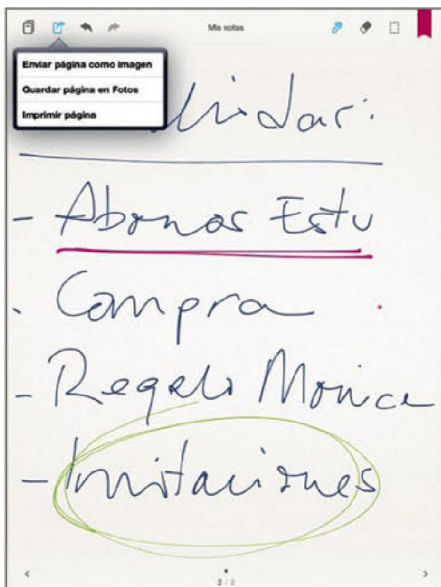 Mis notas
Enviar página como imagen
Guardar página en Fotos
Imprimir página
lvidar:
- Abonos Estu
- Compra
- Regalo Monica
- Invitaciones
2 / 2